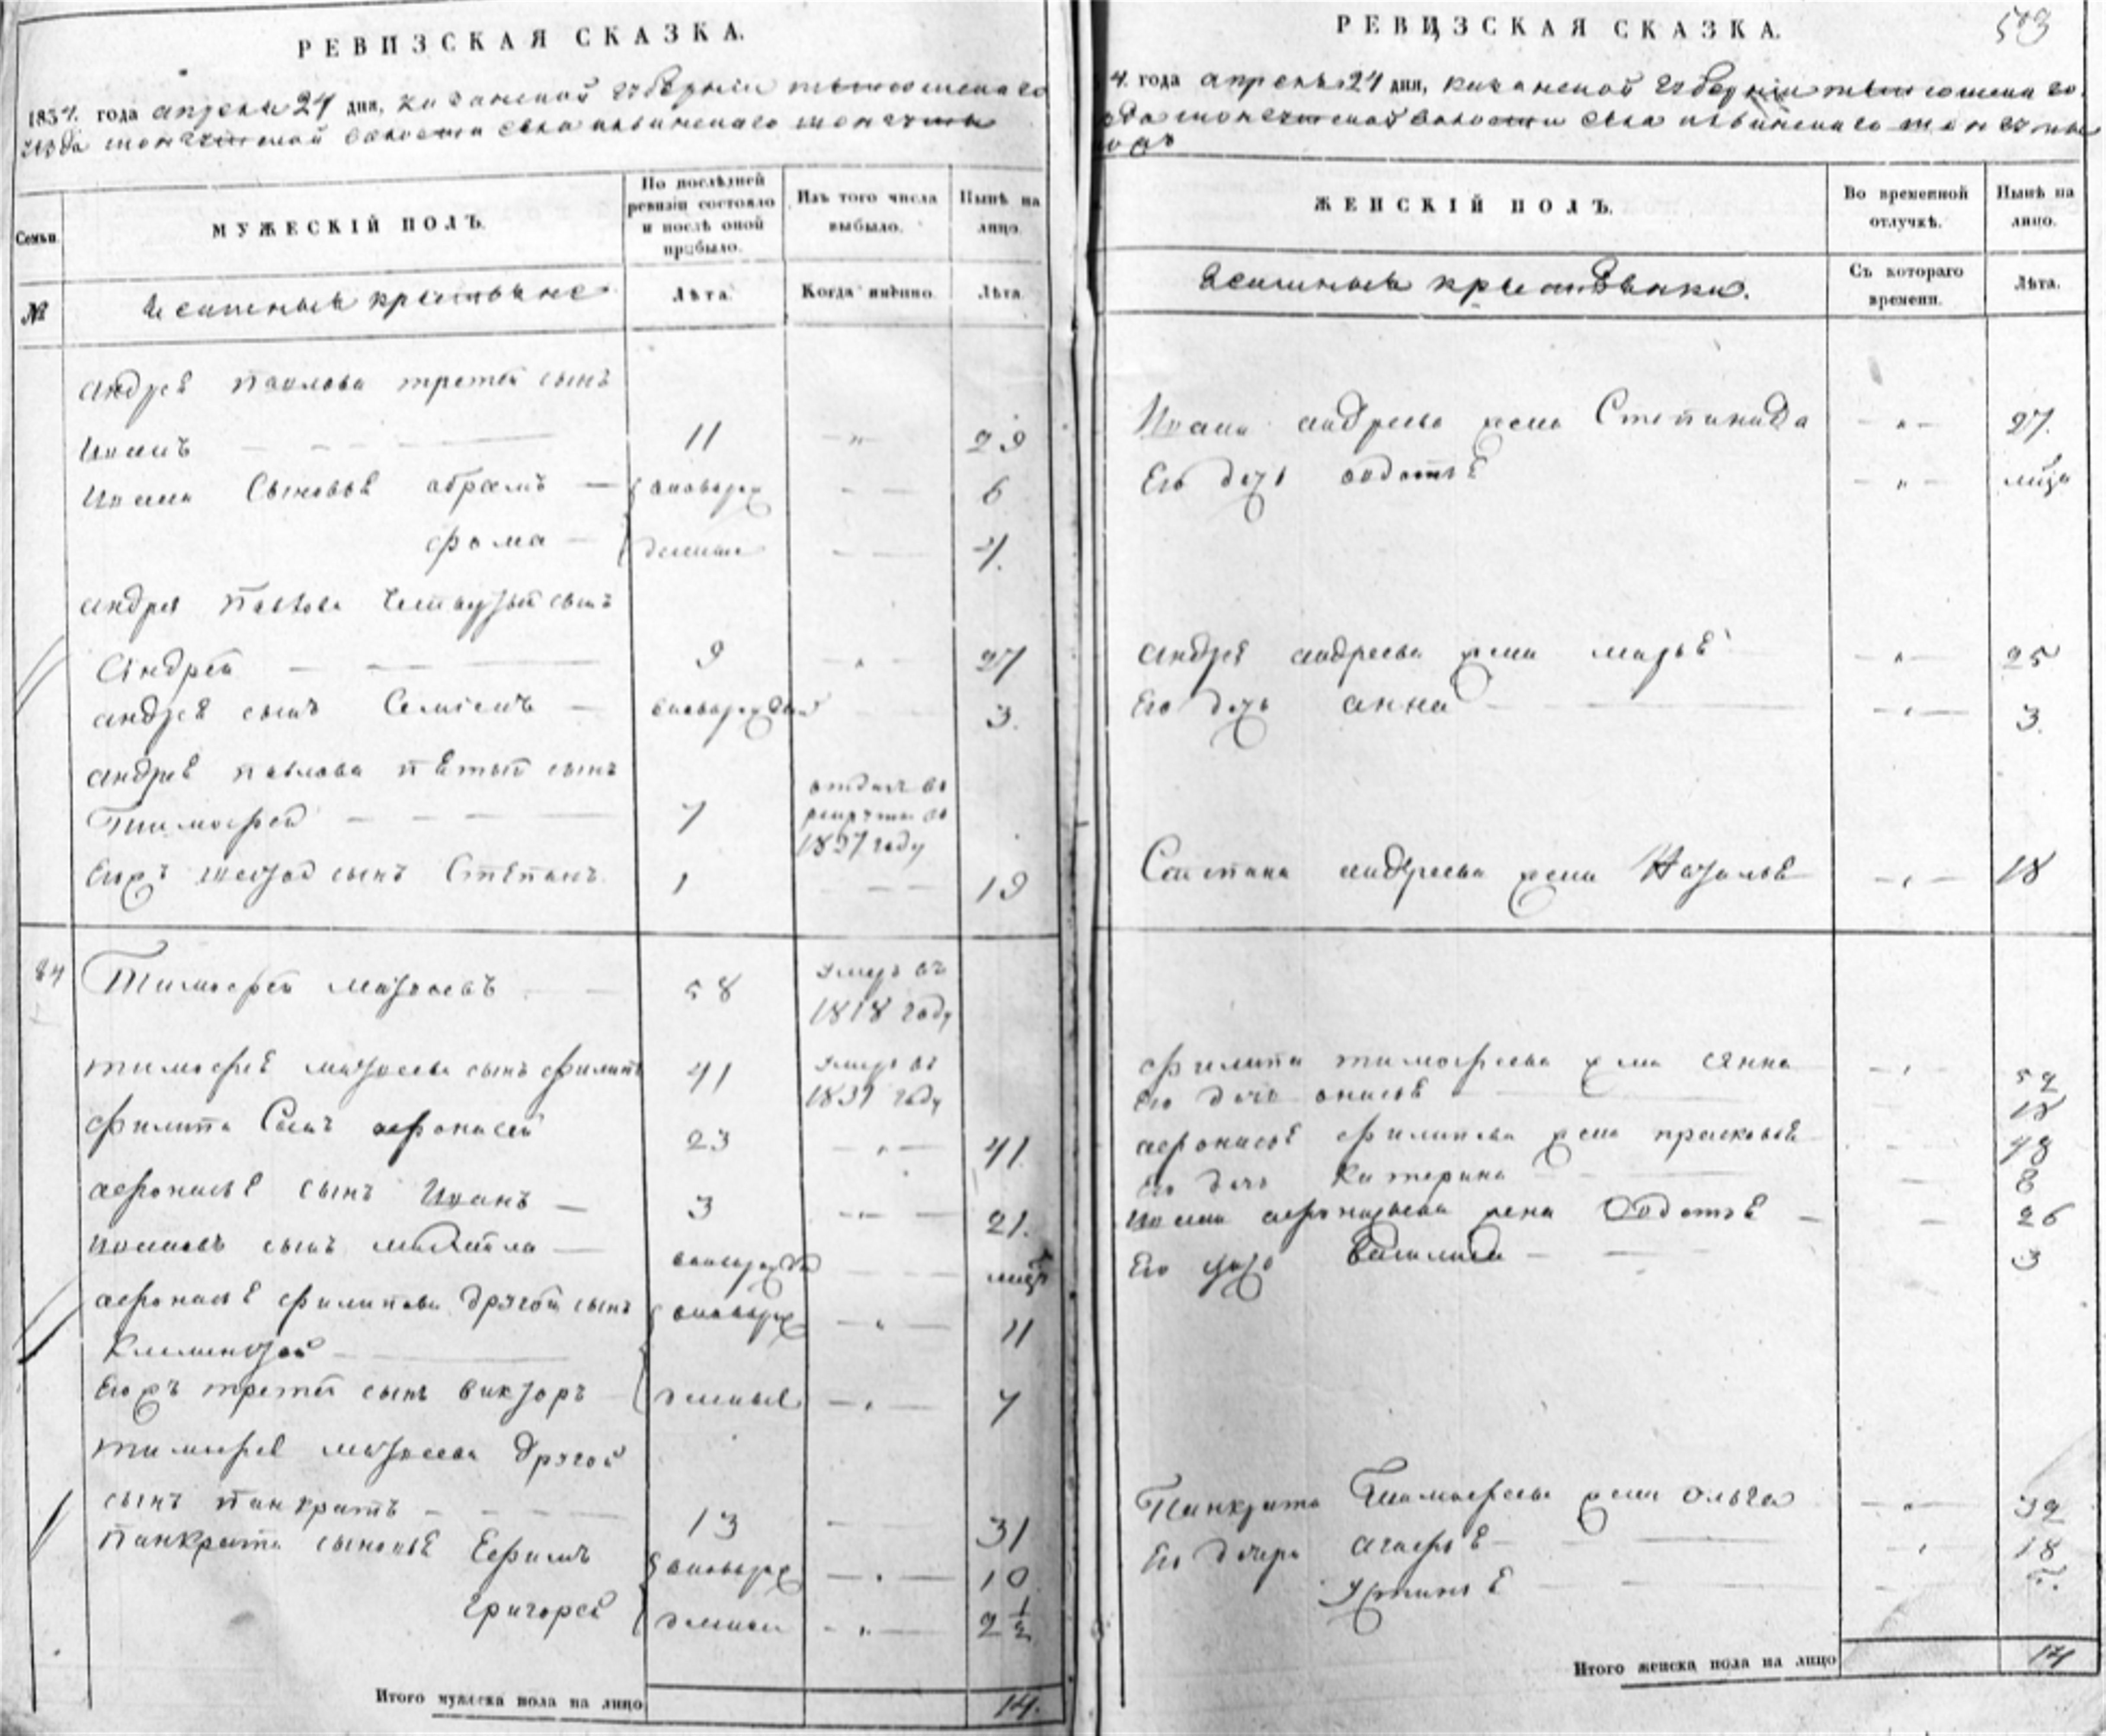 РЕВИЗСКАЯ СКАЗКА.
1834. года апреля 24 дня, казанской губернии
уезда волости села
Семьи.
МУЖЕСКІЙ ПОЛЪ.
По послѣдней ревизіи состояло и послѣ оной прибыло.
Изъ того числа выбыло.
Нынѣ на лицо.
№
ясашные крестьяне
Лѣта.
Когда именно.
Лѣта.
андрея павлова третей сынъ
Иванъ 11 29
Ивана Сыновья абрамъ вновьрож 6
фома денные 4.
андрея Павлова четвертый сынъ
Андрей 9 27
андрея сынъ Семіонъ вновьрожден 3.
андрея павлова пѣтый сынъ
Тимофей 7 отданъ въ рекруты въ 1837 году
Ево шестой сынъ Степанъ 1 19
84 Тимофей Матвѣевъ 58 умеръ въ 1818 году
тимофея матвѣева сынъ филипъ 41 умеръ въ 1831 году
филипа Сынъ афонасей 23 41
афонасья сынъ Иванъ 3 21.
Ивановъ сынъ Михайла вновьрожде
афонасья филипова другой сынъ вновьрож 11
Клементей
Ево третей сынъ викторъ денные 7
тимофея матвѣева другой
сынъ панкратъ 13 31
панкрата сыновья Ефимъ вновьрож 10
григорей денные 2 1/2
Итого мужеска пола на лицо 14.
503
РЕВИЗСКАЯ СКАЗКА.
4. года апреля 24 дня, казанской губернии
волости села
ЖЕНСКІЙ ПОЛЪ.
Во временной отлучкѣ.
Нынѣ на лицо.
ясашныя крестьянки.
Съ котораго времени.
Лѣта.
Ивана андреева жена Степанида 27.
Его дочь авдотья
андрея андреева жена марья 25
Его дочь анна 3.
Степана андреева жена Наталья 18
филипа тимофеева жена Анна 59
Его дочь анисья 18
афонасья филипова жена прасковья 48
Его дочь Катерина 8
Ивана афонасьева жена Авдотья 26
Его дочь Василиса 3
Панкрата Тимофеева жена Ольга 32
Его дочери агафья 18
Устинья 5.
Итого женска пола на лицо 14